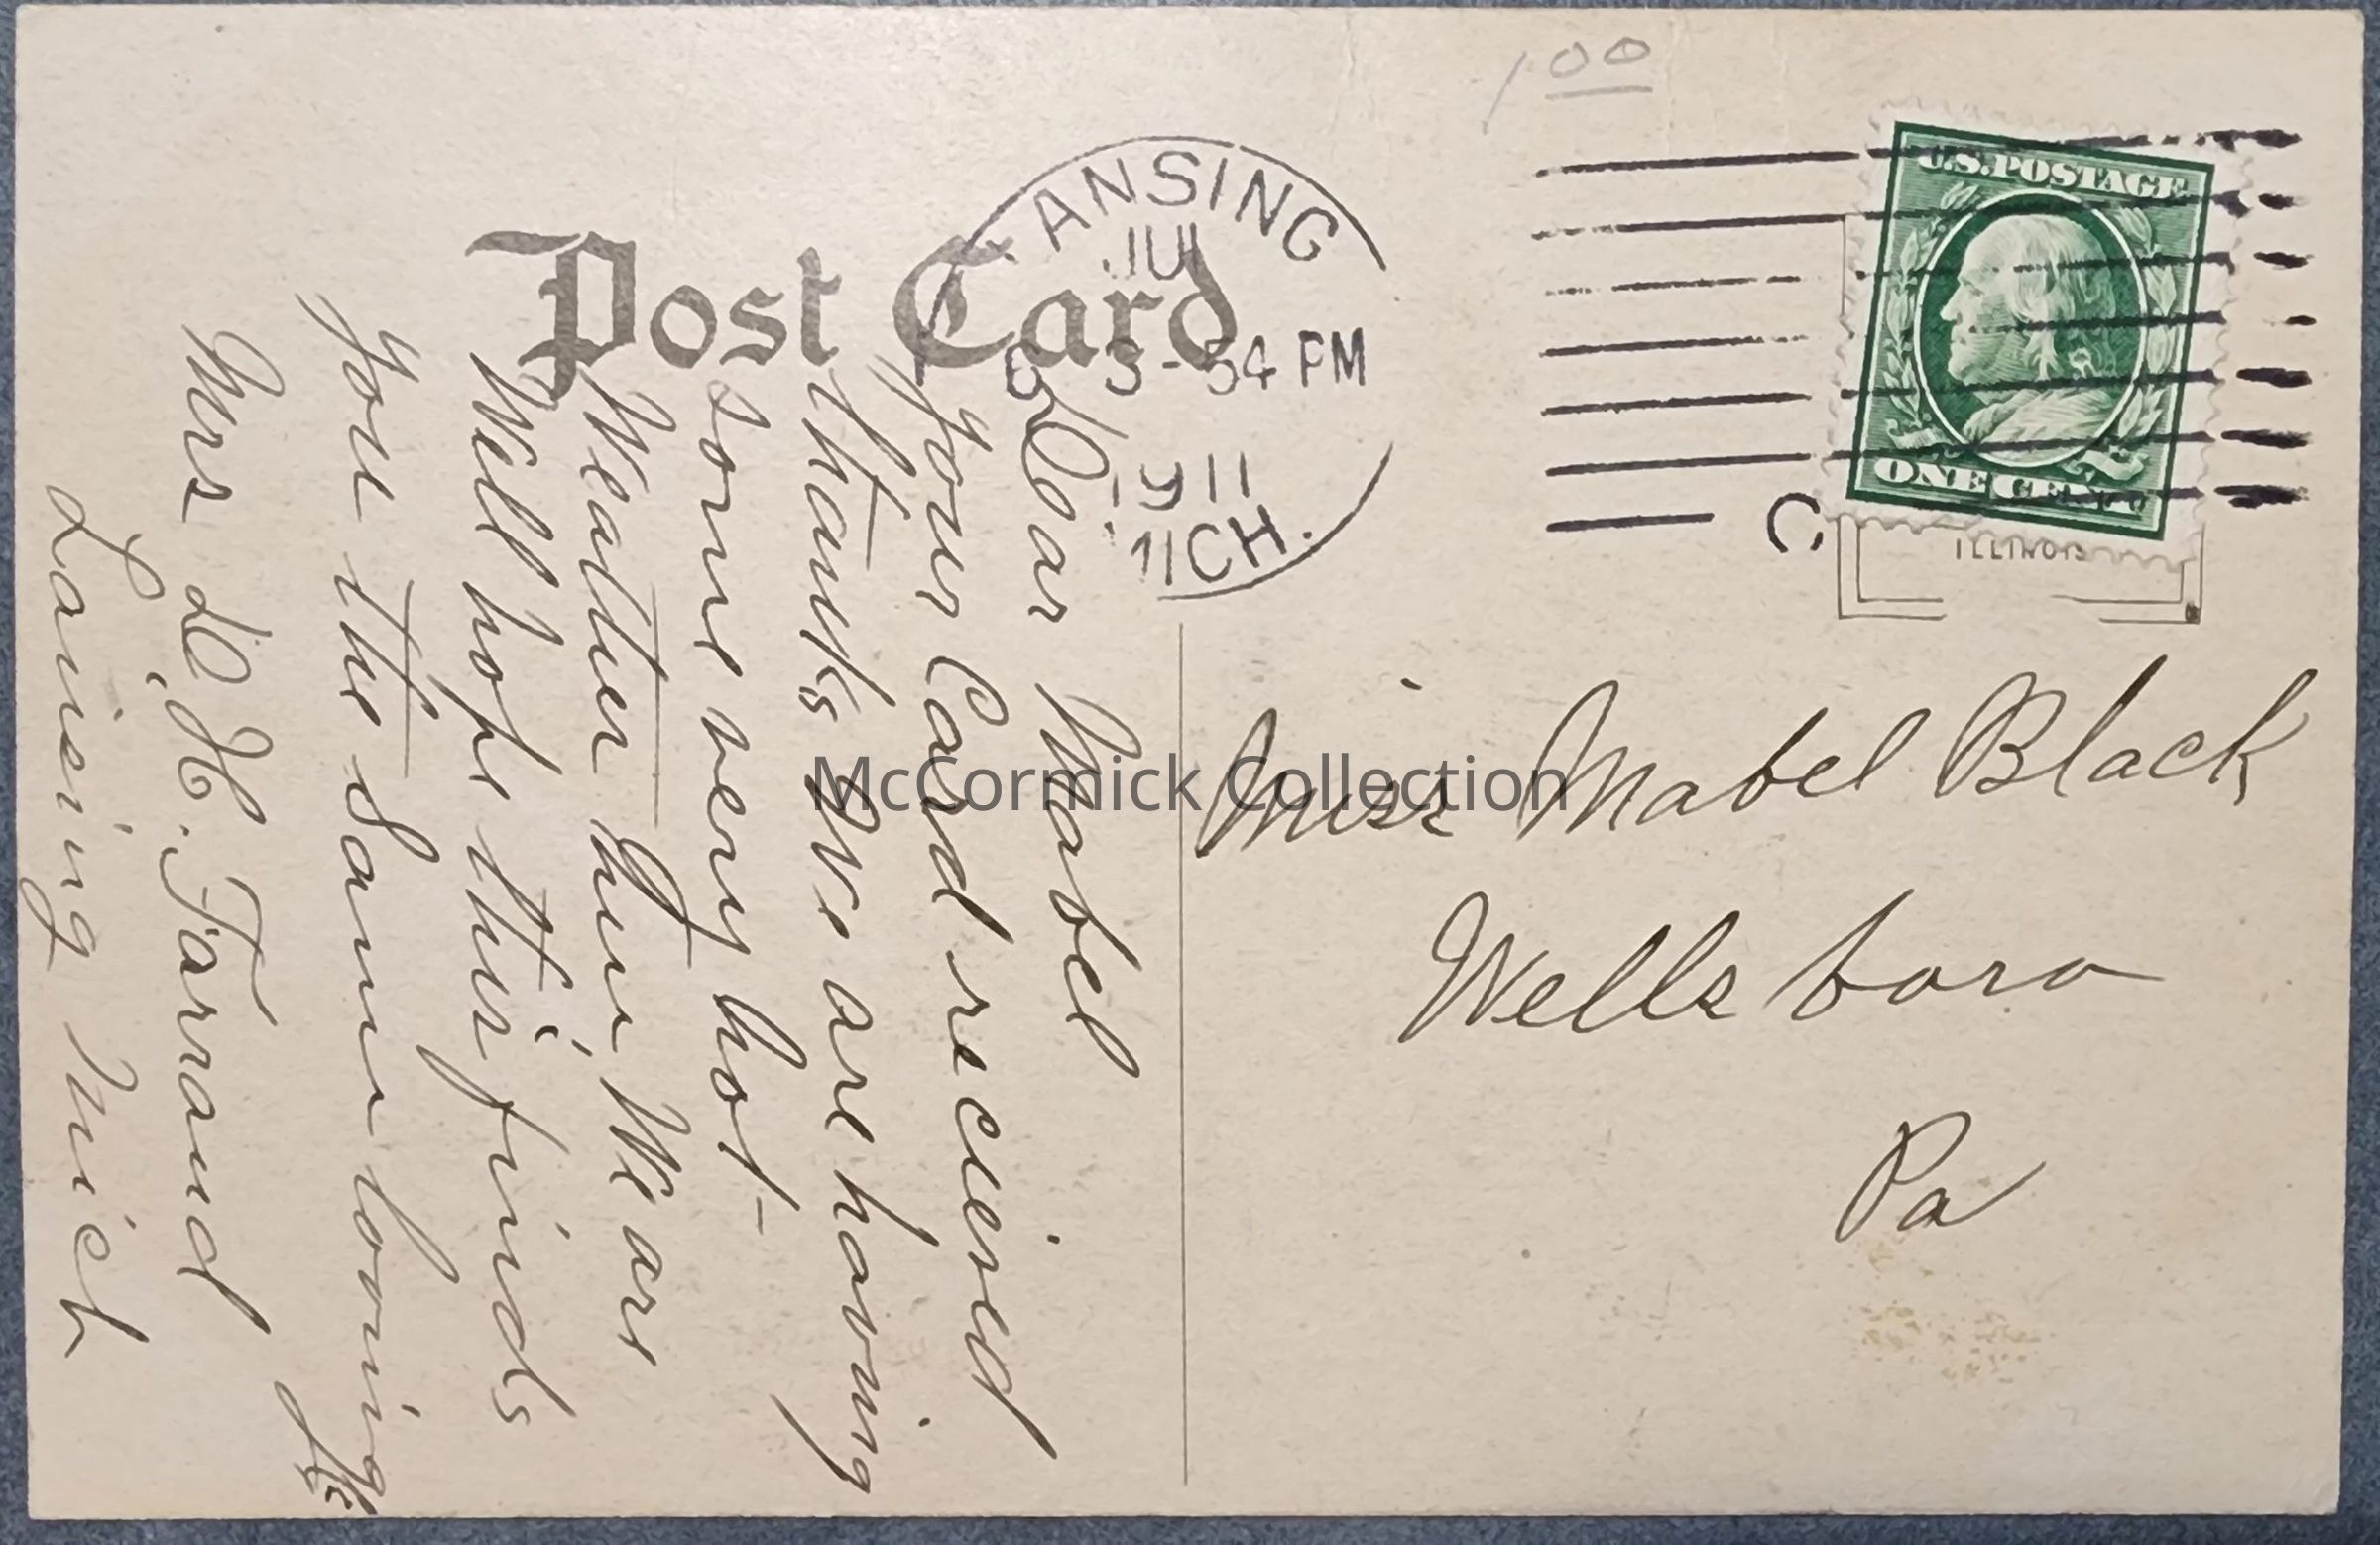 1 00
U.S. POSTAGE
ONE CENT
ILLINOIS
C
ANSING
JUL
3-54 PM
1911
ICH.
Post Card
Miss Mabel Black
Wellsboro
Pa
Dear Mabel
your Card recieved
thanks We are having
some very hot
Weather here, We are
Well hope this finds
you the same loving
Mrs D. H. Farrand
Lansing Mich
McCormick Collection